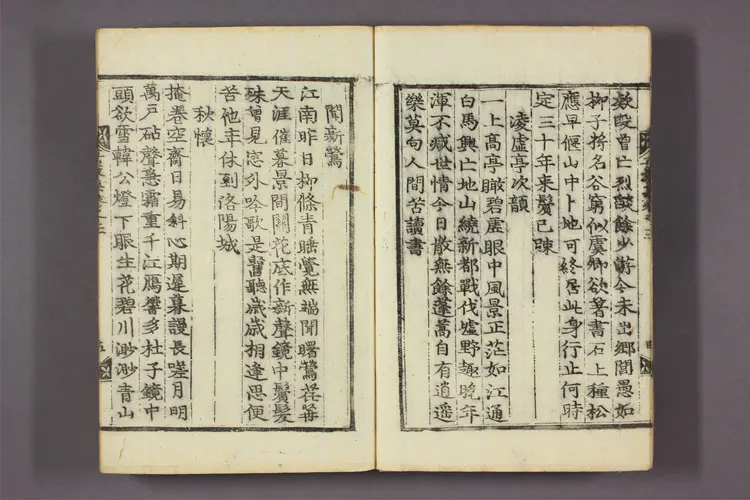 曾亡烈酸餘少游今未出鄉閭愚如
柳子名谷窮似虞卿欲著書石上種松
應早偃山中卜地可終居此身行止何時
定三十年来鬢已踈
凌虛亭次韻
一上高亭瞰碧虛眼中風景正茫如江通
白馬興亡地山繞新都戰伐墟野趣晚年
渾不减世情今日散無餘蓬蒿自有逍遥
樂莫向人間苦讀書
聞新鶯
江南昨日柳條青睡覺無端聞曙鶯荏苒
天涯催暮景間關花底作新聲鏡中鬢髮
殊曾見窓外吟歌是舊聽歲歲相逢思便
苦他年休到洛陽城
秋懷
掩卷空齋日易斜心期遲暮謾長嗟月明
萬戶砧聲急霜重千江鴈響多杜子鏡中
頭欲雪韓公燈下眼生花碧川渺渺青山